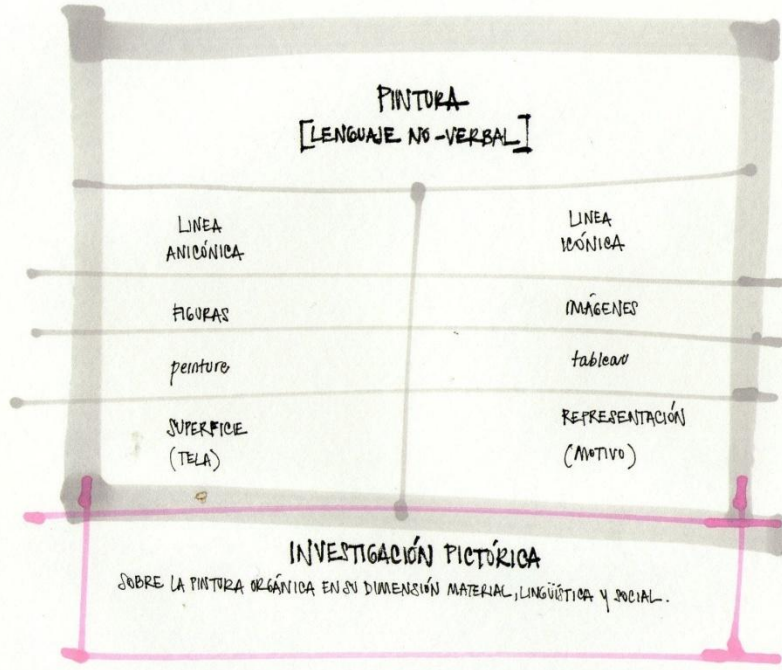 PINTURA
[LENGUAJE NO-VERBAL]
LINEA
ANICÓNICA
LINEA
ICÓNICA
FIGURAS
IMÁGENES
peinture
tableau
SUPERFICIE
(TELA)
REPRESENTACIÓN
(MOTIVO)
INVESTIGACIÓN PICTÓRICA
SOBRE LA PINTURA ORGÁNICA EN SU DIMENSIÓN MATERIAL, LINGÜÍSTICA Y SOCIAL.